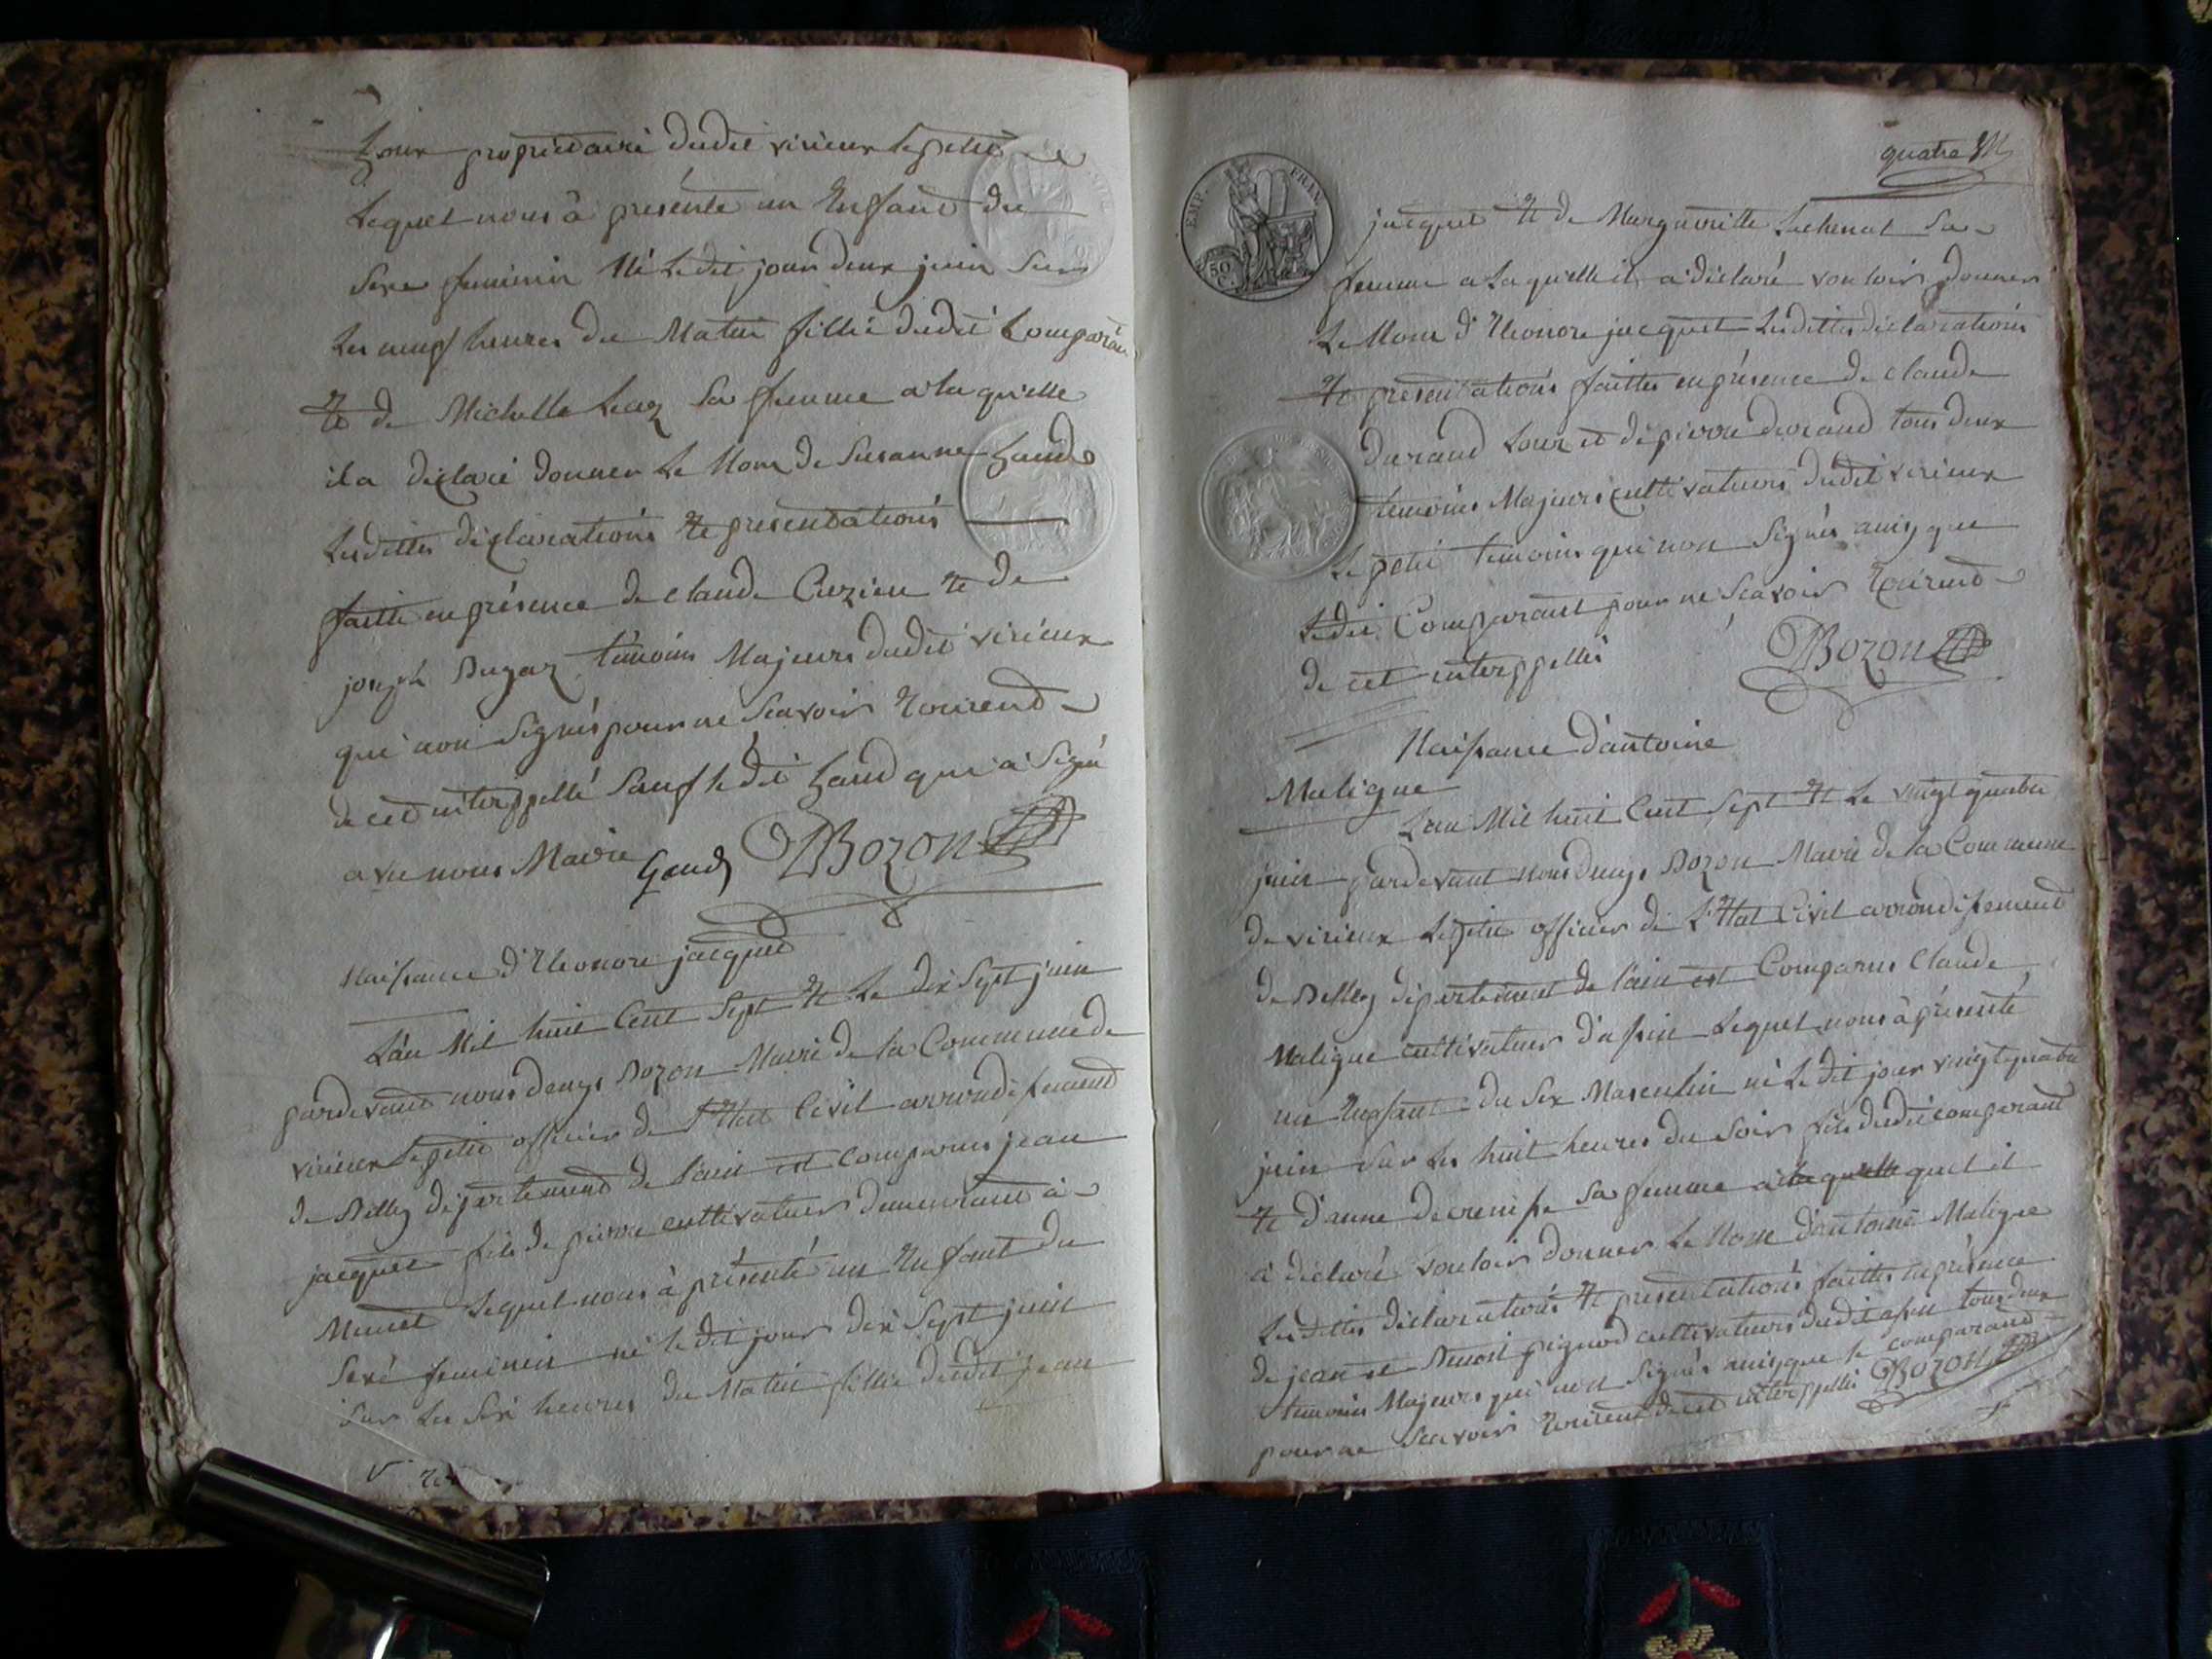 propriétaire dudit virieux le petit
Lequel nous à présenté un Enfant du
Sexe feminin Né Ledit jour deux juin Sur
Les neuf heures du Matin fillie dudit Comparan
Et de Michelle Sa femme a laquelle
il a déclaré donner Le Nom de Susanne Gaud
Lesdittes déclarations Et presentations
faitte en présence de claude Cuzieu Et de
joseph Dugaz temoins Majeurs dudit virieux
qui non Signés pour ne Scavoir Ecrire
de cet interppellé Sauf le dit Gaud qui a Signé
avec nous Maire Gaud DBozon
Naissance d'Eleonore jacquet
L'an Mil huit Cent Sept Et Le dix Sept juin
pardevant nous denys Bozon Maire de la Commune de
virieux Le petit officier de l'Etat Civil arrondissement
de Belley département de l'ain est comparus jean
jacquet fils de pierre cultivateur demeurant à
Munet Lequel nous à présenté un Enfant du
Sexe feminin né le dit jour dix Sept juin
Sur Les Six heures du Matin fillie dudit jean
quatre
EMP. FRAN.
50 C.
jacquet Et de Margueritte Lachenal Sa
femme a Laquelle il a déclaré vouloir donner
Le Nom d'Eleonore jacquet Lesdittes déclarations
Et présentations faittes en présence de claude
durand Loux et de pierre durand tous deux
temoins Majeurs cultivateurs dudit virieux
Le petit temoins qui non Signés ainsy que
Ledit Comparant pour ne Scavoir Ecrire
de cet interppellés DBozon
Naissance d'antoine
Maligne
L'an Mil huit Cent Sept Et Le vingt quatre
juin pardevant nous denys Bozon Maire de la Commune
de virieux Le petit officier de L'Etat Civil arrondissement
de Belley département de l'ain est Comparus Claude
Maligne cultivateur d'assin Lequel nous à présenté
un Enfant du Sex Masculin né Le dit jour vingt quatre
juin Sur Les huit heures du Soir fils dudit comparant
Et d'anne Sa femme a laquelle quel il
à déclaré vouloir donner Le Nom d'antoine Maligne
Lesdittes déclarations Et presentations faittes en présence
de jean et Benoit pignod cultivateurs dudit assin tous deux
temoins Majeurs qui non Signés ainsy que le comparand
pour ne Scavoir Ecrire de cet interppellés DBozon